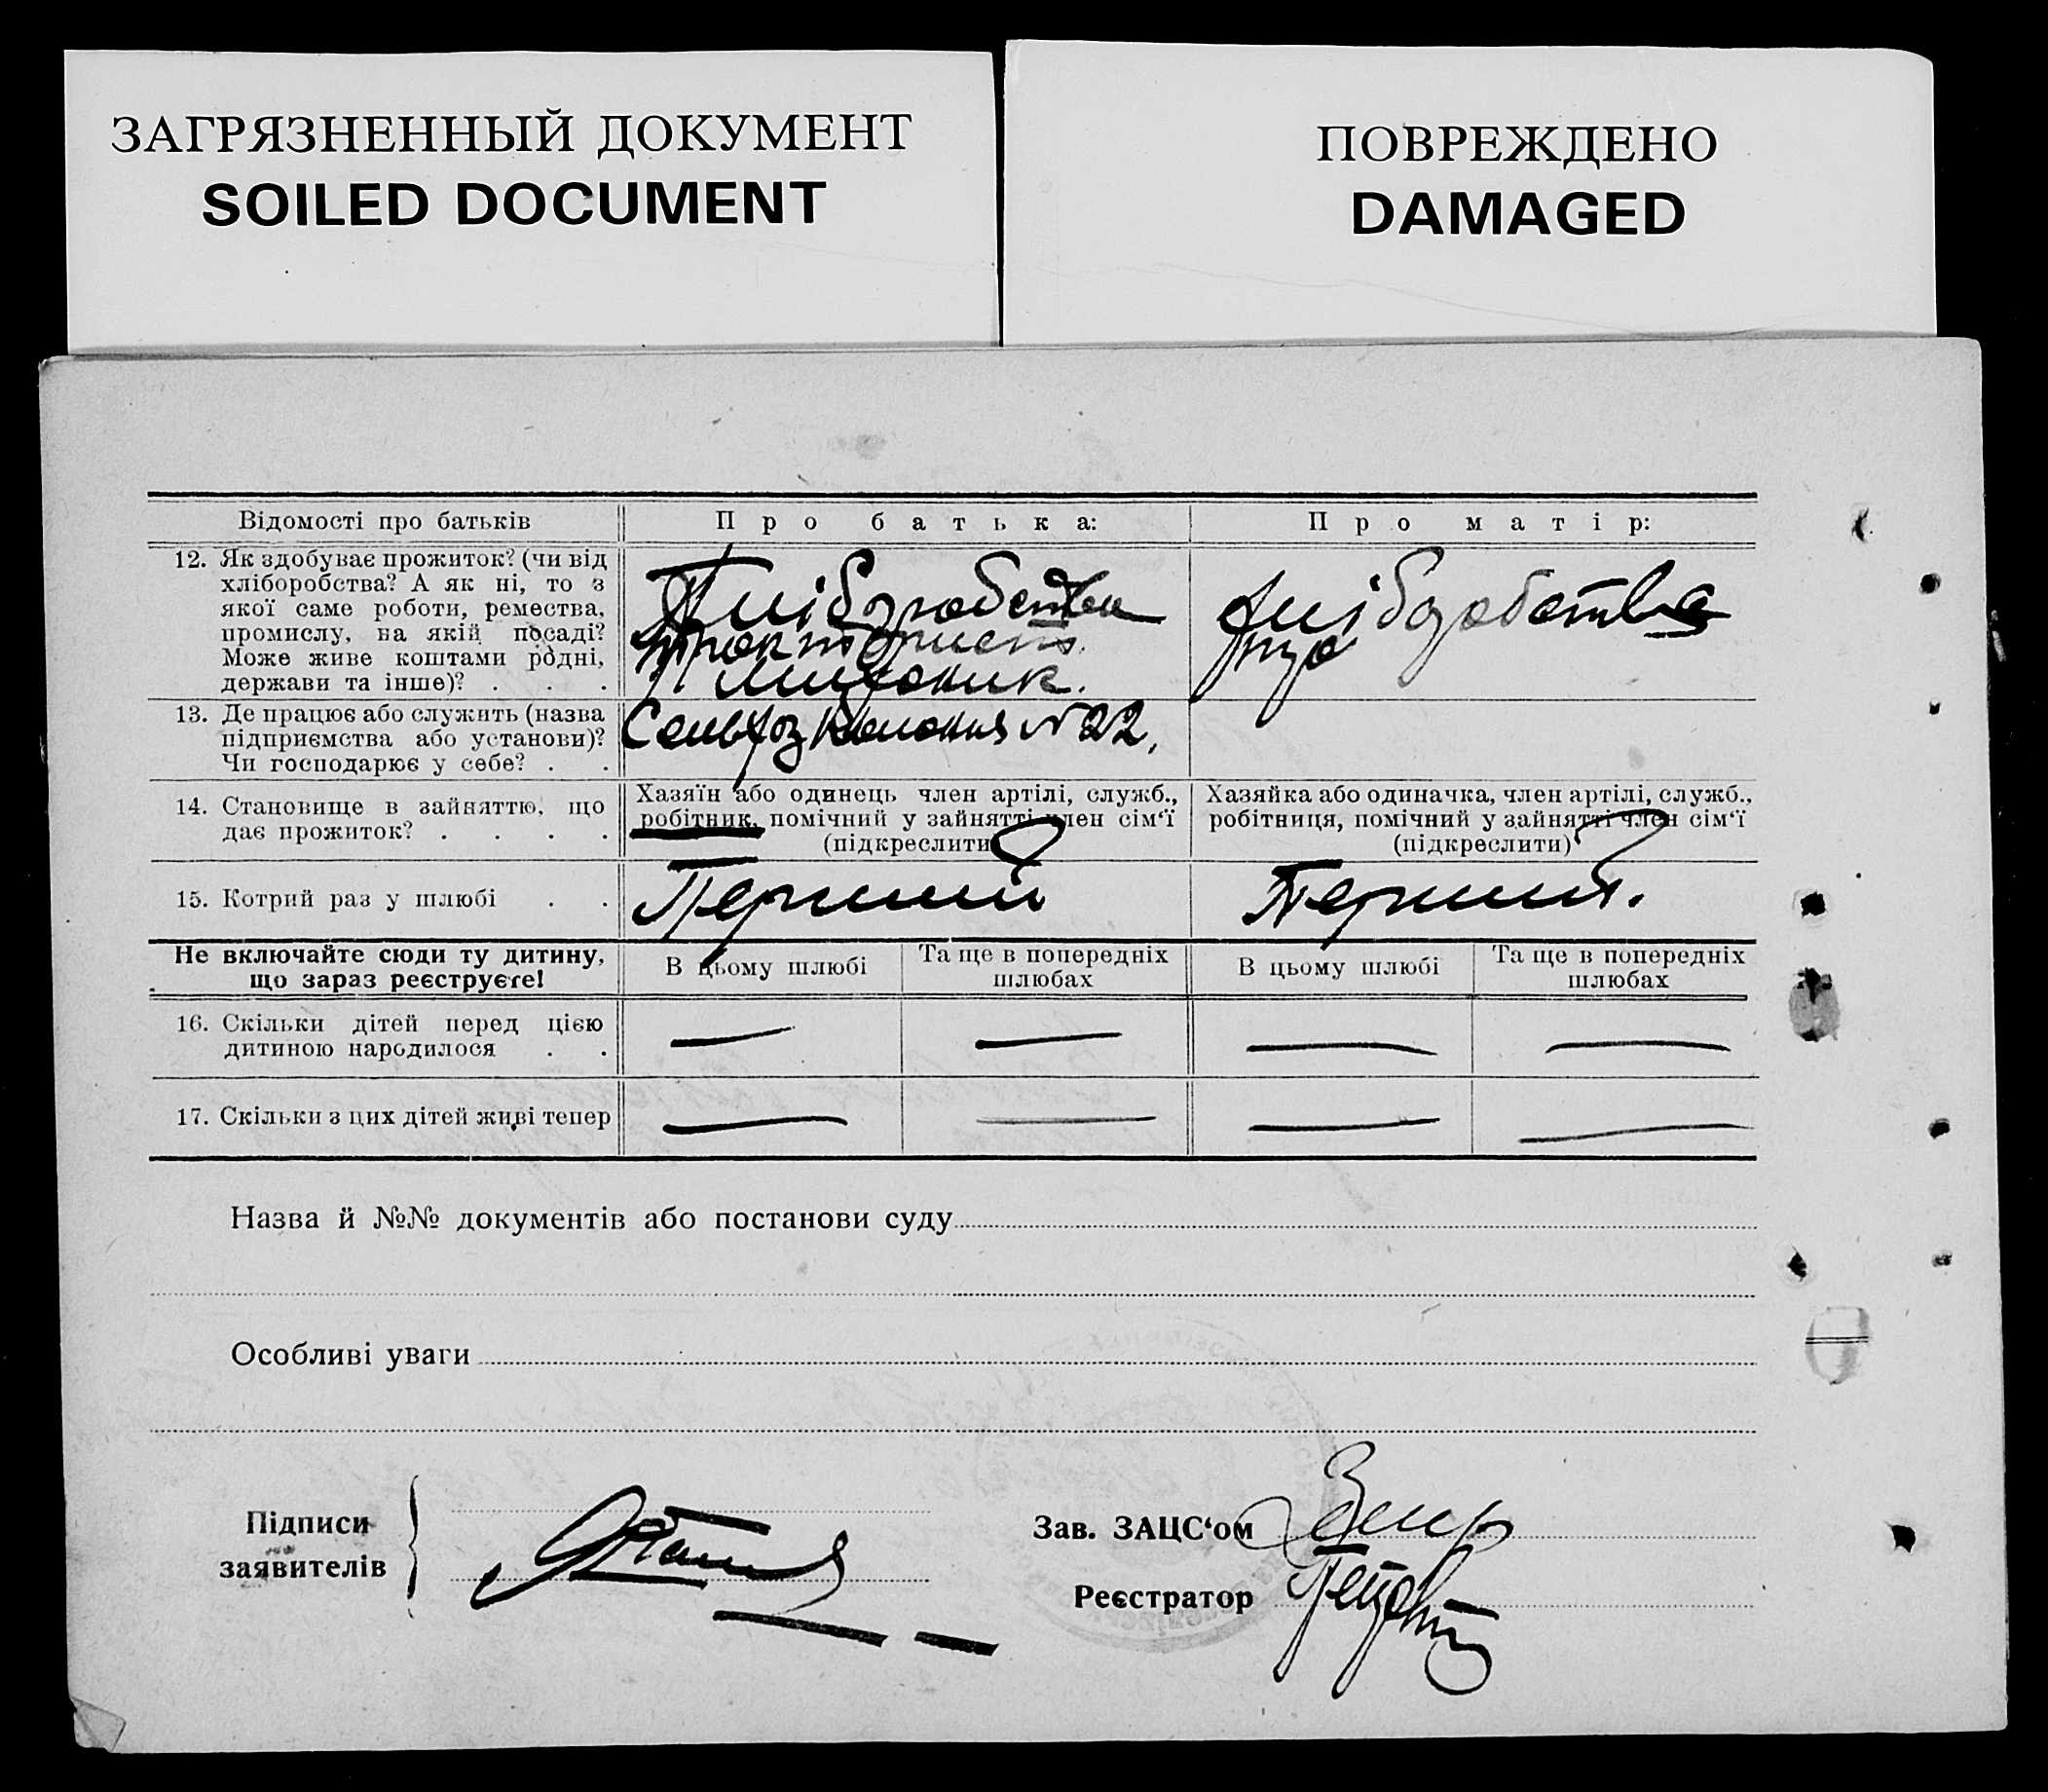 ЗАГРЯЗНЕННЫЙ ДОКУМЕНТ
SOILED DOCUMENT
ПОВРЕЖДЕНО
DAMAGED
Відомості про батьків
Про батька:
Про матір:
12. Як здобуває прожиток? (чи від
хліборобства? А як ні, то з
якої саме роботи, ремества,
промислу, на якій посаді?
Може живе коштами рідні,
держави та інше)? . . .
Хліборобства
тракторист
хліборобства
13. Де працює або служить (назва
підприємства або установи)?
Чи господарює у себе? . .
Сельхоз Колонія № 22.
14. Становище в зайняттю, що
дає прожиток? . . . .
Хазяїн або одинець член артілі, служб.,
робітник, помічний у зайнятті член сім‘ї
(підкреслити)
Хазяйка або одиначка, член артілі, служб.,
робітниця, помічний у зайнятті член сім‘ї
(підкреслити)
15. Котрий раз у шлюбі . .
Перший
Перший.
Не включайте сюди ту дитину,
що зараз реєструєте!
В цьому шлюбі
Та ще в попередніх
шлюбах
В цьому шлюбі
Та ще в попередніх
шлюбах
16. Скільки дітей перед цією
дитиною народилося . .
—
—
—
—
17. Скільки з цих дітей живі тепер
—
—
—
—
Назва й №№ документів або постанови суду
Особливі уваги
Підписи
заявителів
Зав. ЗАЦС‘ом
Реєстратор